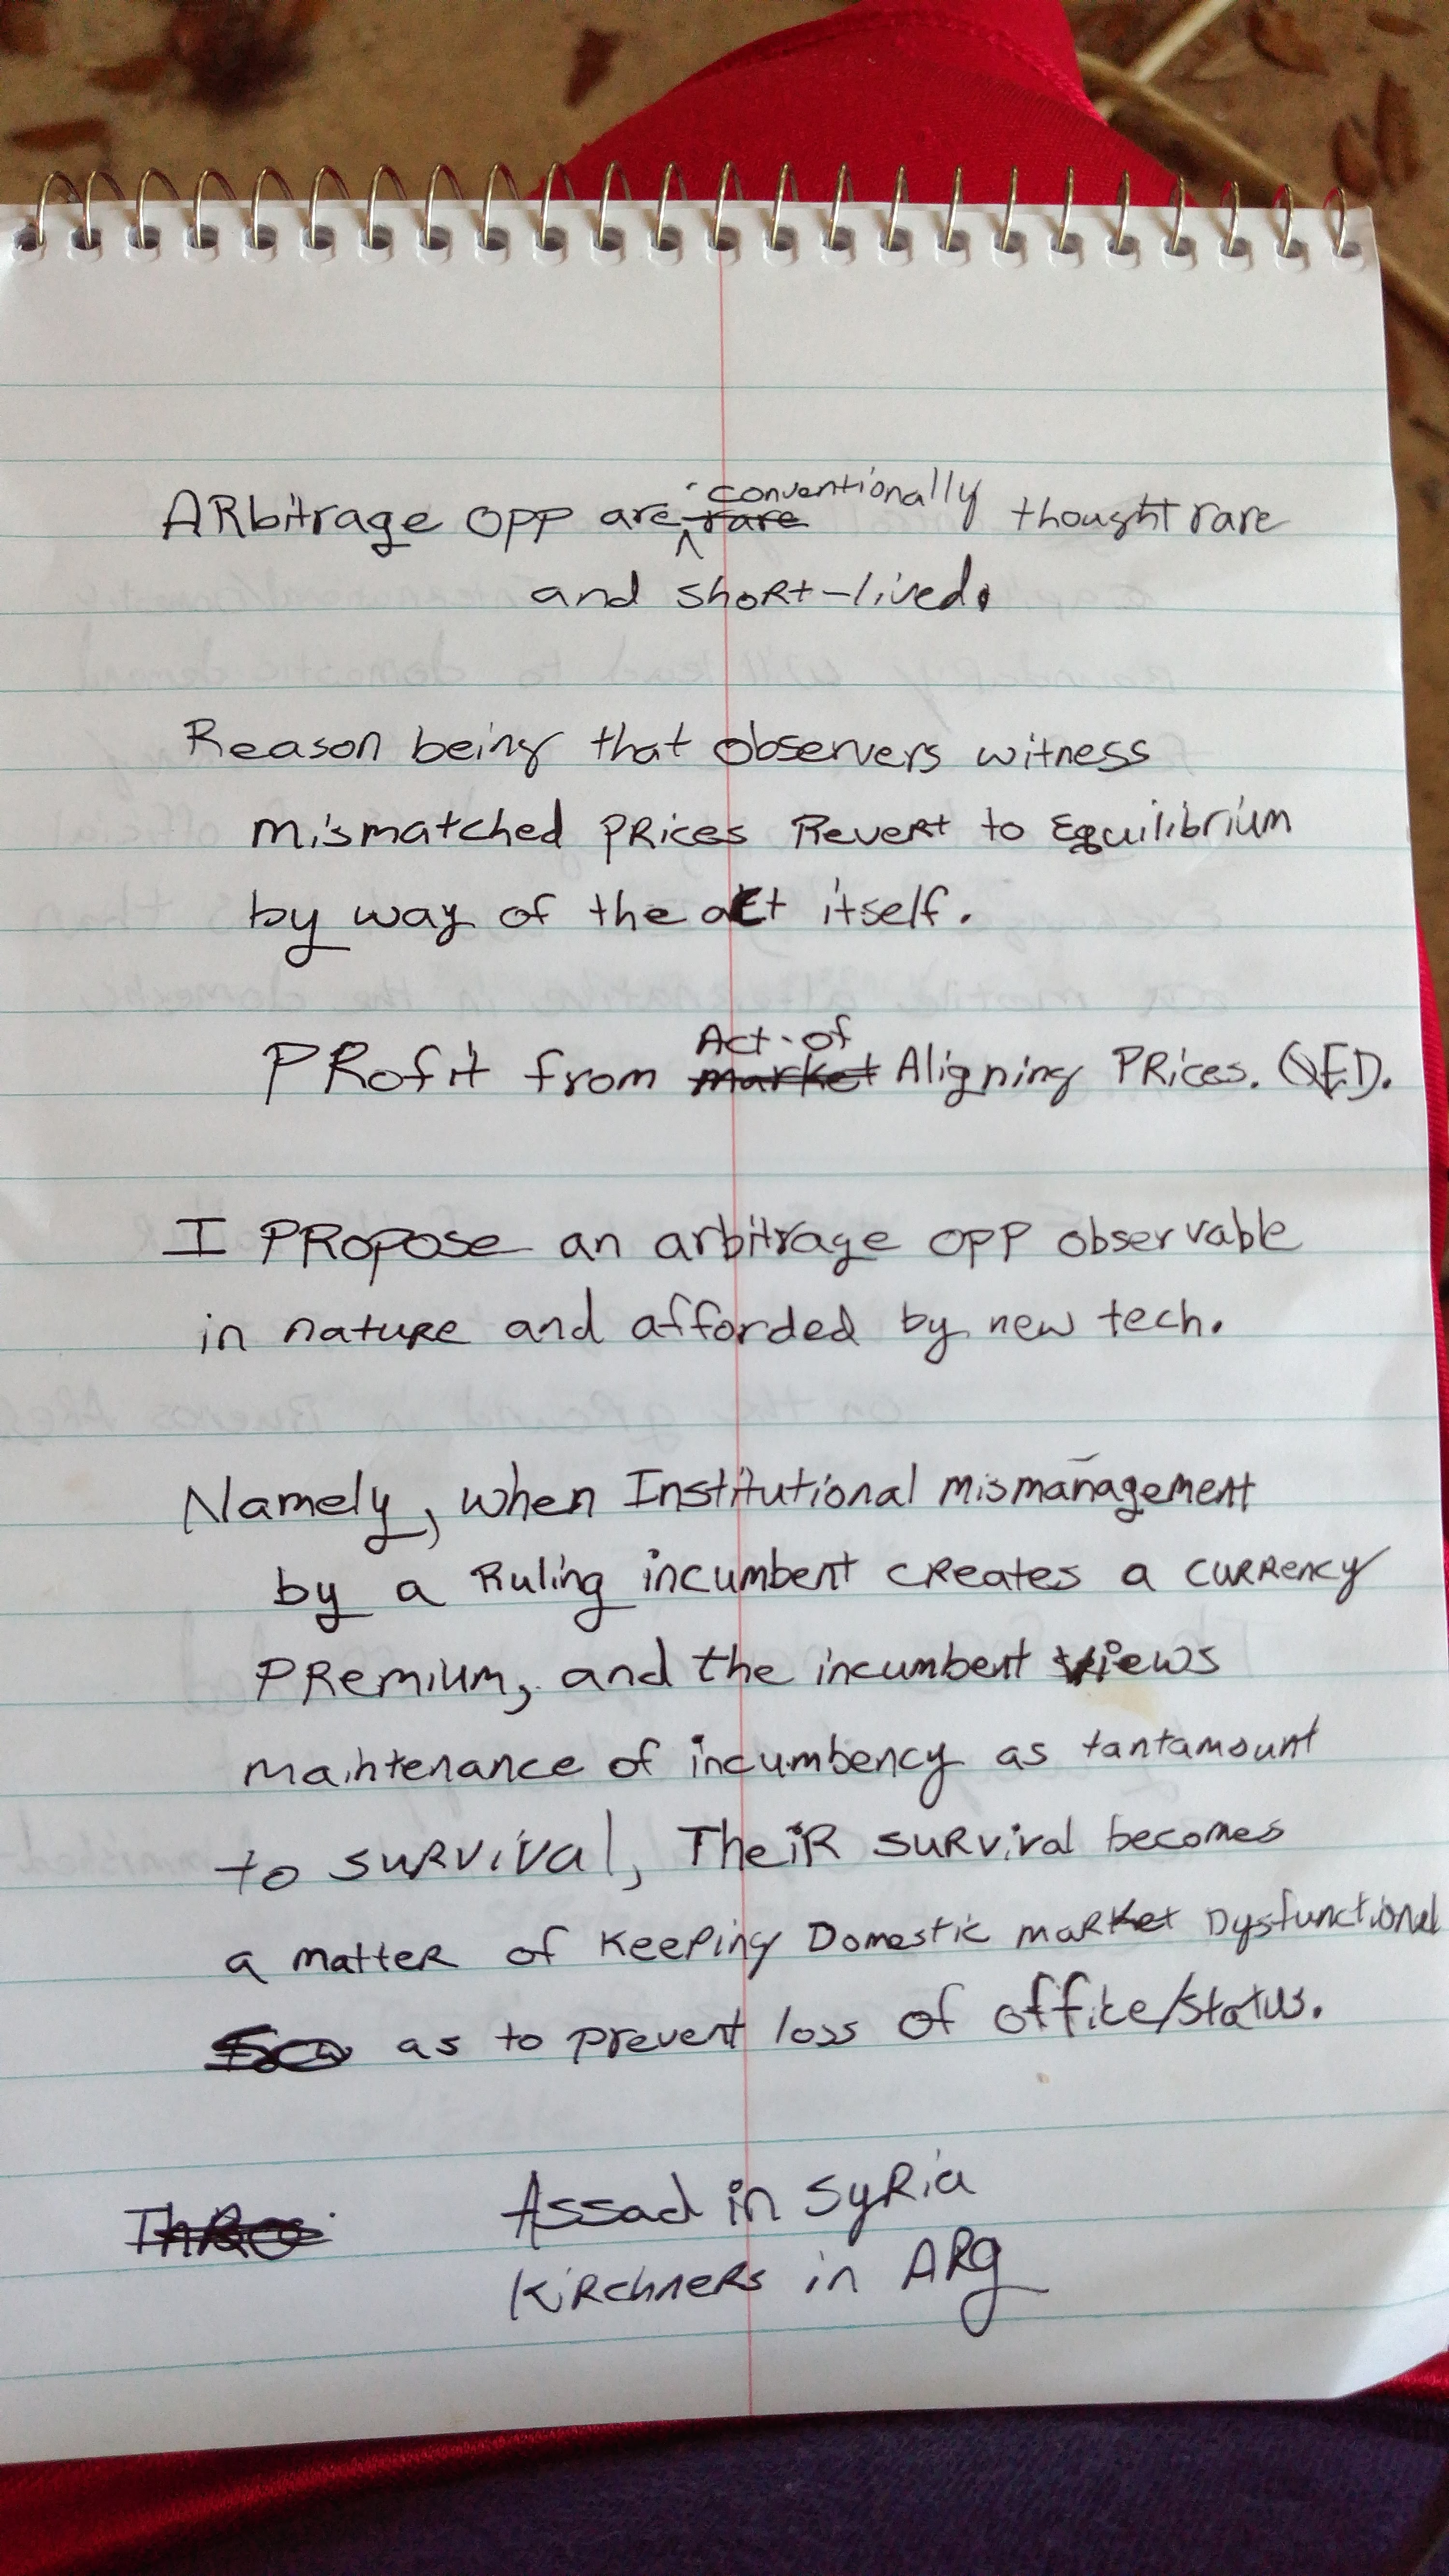 Arbitrage opp are rare conventionally thought rare
and short-lived.
Reason being that observers witness
mismatched prices Revert to Equilibrium
by way of the act itself.
Profit from market Act of Aligning Prices. QED.
I propose an arbitrage opp observable
in nature and afforded by new tech.
Namely, when Institutional mismanagement
by a Ruling incumbent creates a currency
premium, and the incumbent views
maintenance of incumbency as tantamount
to survival, Their survival becomes
a matter of keeping Domestic market Dysfunctional
as to prevent loss of office/status.
Assad in Syria
Kirchners in ARg